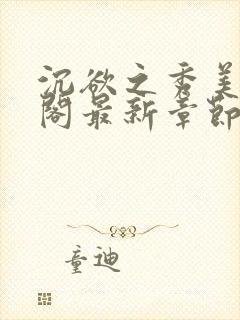 沉欲之秀美
阁最新章节
童迪